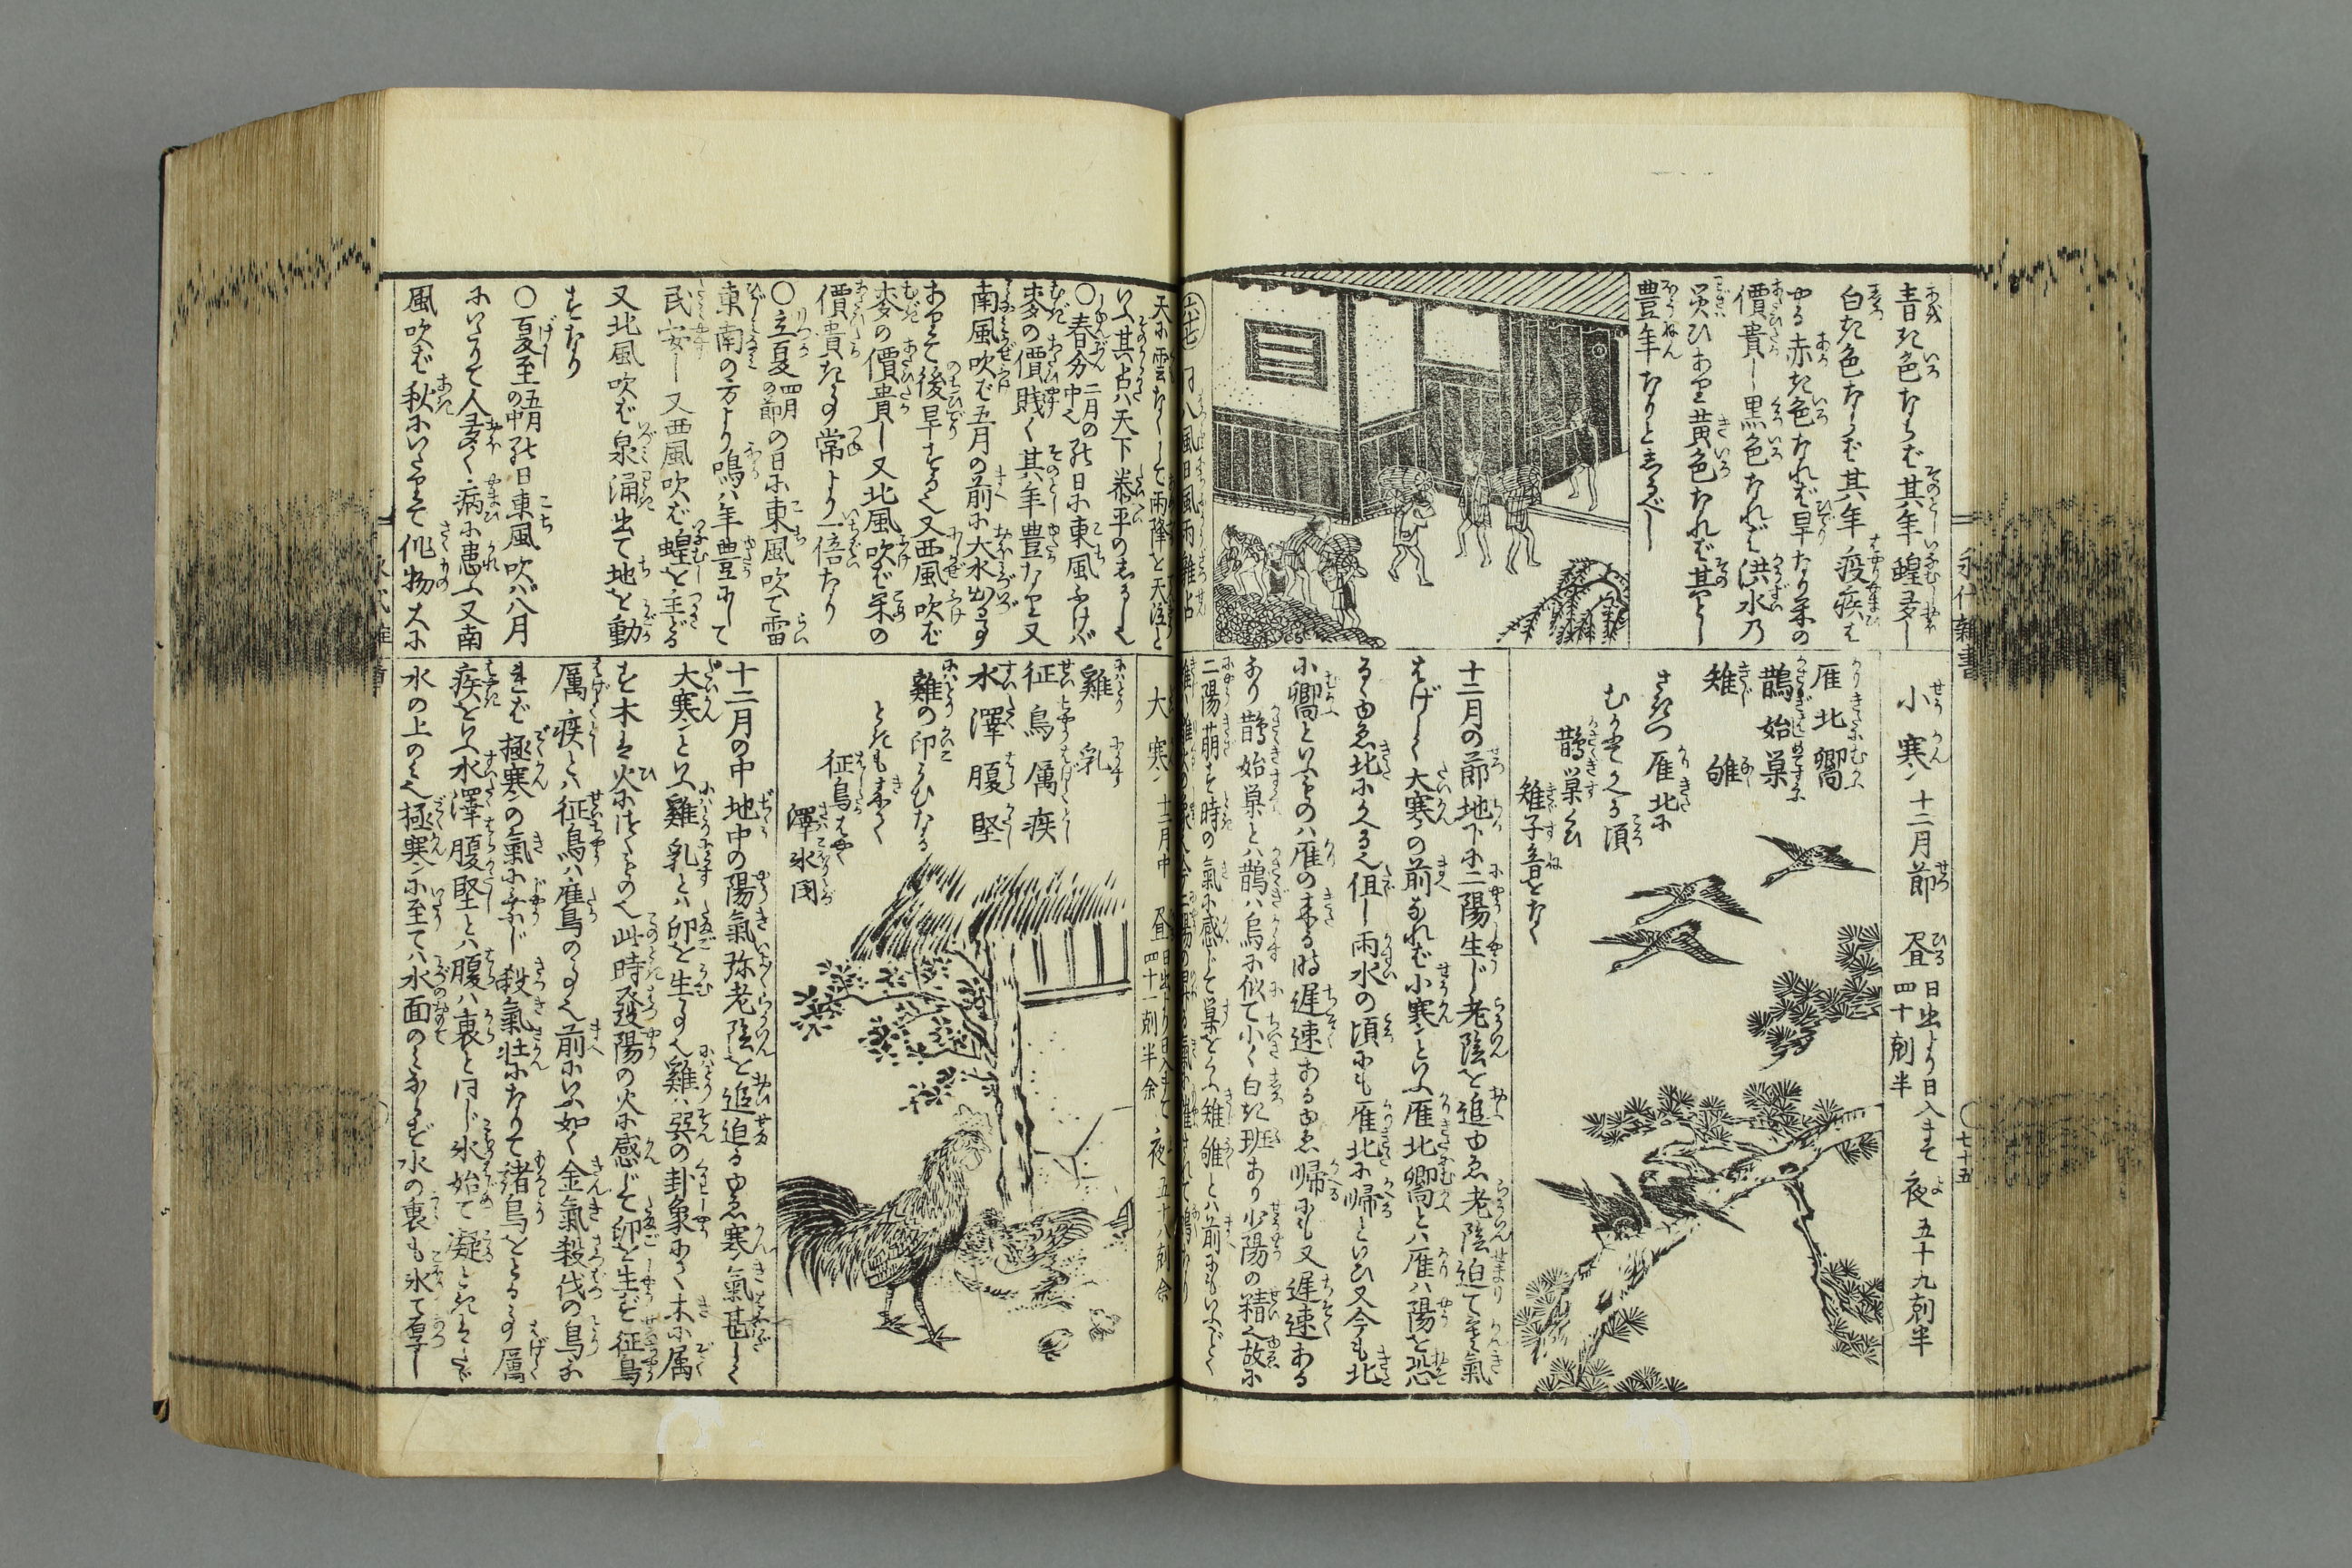 青き色ならば其年蝗多し
白き色ならば其年疫疾はやる赤き色なれば旱なり米の
價貴し黒色なれば洪水乃
災ひあり黄色なれば其とし
豊年なりとしるべし
小寒 十二月節 昼 日出より日入まで 四十剋半 夜 五十九剋半
雁北郷
鵲始巣
雉雊
さきつ雁北に
むかへる頃
鵲巣くひ
雉子音をなく
十二月の節地下に二陽生じ老陰を追ゆゑ老陰迫て寒氣
はげしく大寒の前なれば小寒といふ雁北郷とハ雁ハ陽を恐
るゝゆゑ北にかへる也但し雨水の頃にも雁北に帰といひ又今も北
に郷といふものハ雁の来る時遅速あるゆゑ帰にも又遅速ある
なり鵲始巣とハ鵲ハ烏に似て小く白き班あり少陽の精也故に
二陽萌を時の氣に感じて巣をくふ雉雊とハ前にもいふごとく
永代雑書
七十五
天に雲なくして雨降を天泣と
いふ其占ハ天下泰平のしるし也
〇春分 二月の中也 の日に東風ふけば
麥の價賤く其年豊なり又
南風吹ば五月の前に大水出る事
ありて後旱する也又西風吹ば
麥の價貴し又北風吹ば米の
價貴き事常より一倍なり
〇立夏 四月の節 の日に東風吹て雷
東南の方より鳴ハ年豊にして
民安し又西風吹ば蝗を主どる
又北風吹ば泉涌出て地を動
すなり
〇夏至 五月の中 の日東風吹バ八月
にいたりて人多く病に患ふ又南
風吹ば秋にいたりて作物大に
大寒 十二月中 昼 日出より日入まで 四十一剋半余 夜 五十八剋余
雞乳
征鳥厲疾
水澤腹堅
雞の卵うむなる
ときも来く
征鳥はやく
澤氷固
十二月の中地中の陽氣弥老陰を追迫るゆゑ寒氣甚しく
大寒といふ雞乳とハ卵を生事也雞ハ巽の卦象にて木に属
す木は火にほくもの也此時發陽の火に感じて卵を生ず征鳥
厲疾とハ征鳥ハ鷹鳥の事也前にいふ如く金氣殺伐の鳥な
れば極寒の氣に乗じ殺氣壮になりて諸鳥をとる事厲
疾をいふ水澤腹堅とハ腹ハ裏と同じ氷始て凝ときはたゞ
水の上のミ也極寒に至てハ水面のミならず水の裏も氷て厚し